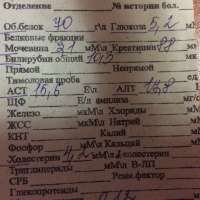 Отделение № истории бол.
Об.белок 70 г\л Глюкоза 5,2
Белковые фракции
Мочевина 21 мМ\л Креатинин 88
Билирубин общий 10,5 мк
Прямой Непрямой
Тимоловая проба
АСТ 15,6 Е\л АЛТ 12,8
ЩФ Е/л амилаза мг/
Железо мкМ\л Хлориды
ЖСС МкМ\л Натрий
КНТ Калий
Фосфор мМ\л Кальций
Холестерин 4,2 мМ\л
Триглицериды мМ\л В-ЛП
СРБ Ревм.фактор